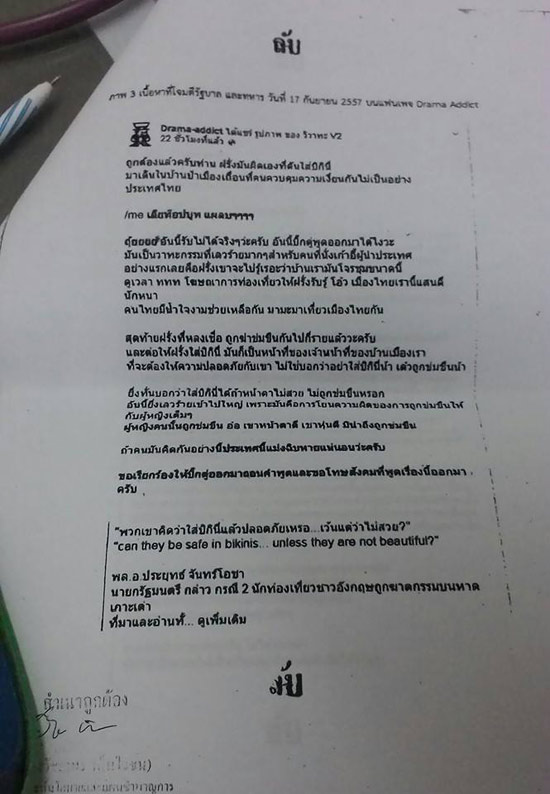 ลับ
ภาพ 3 เนื้อหาที่โจมตีรัฐบาล และทหาร วันที่ 17 กันยายน 2557 บนแฟนเพจ Drama Addict
Drama-addict ได้แชร์ รูปภาพ ของ วิวาทะ V2
22 ชั่วโมงที่แล้ว
ถูกต้องแล้วครับท่าน ฝรั่งมันผิดเองที่ดันใส่บิกินี่
มาเดินในบ้านป่าเมืองเถื่อนที่คนควบคุมความเงี่ยนกันไม่เป็นอย่าง
ประเทศไทย
/me เลียท้อปบูท แผลบๆๆๆๆ
อันนี้รับไม่ได้จริงๆว่ะครับ อันนี้บิ๊กตู่พูดออกมาได้ไงวะ
มันเป็นวาทะกรรมที่เลวร้ายมากๆสำหรับคนที่นั่งเก้าอี้ผู้นำประเทศ
อย่างแรกเลยคือฝรั่งเขาจะไปรู้เรอะว่าบ้านเรามันโจรชุมขนาดนี้
ดูเวลา ททท โฆษณาการท่องเที่ยวให้ฝรั่งรับรู้ โอ๋ว เมืองไทยเรานี้แสนดี
นักหนา
คนไทยมีน้ำใจงามช่วยเหลือกัน มามะมาเที่ยวเมืองไทยกัน
สุดท้ายฝรั่งที่หลงเชื่อ ถูกฆ่าข่มขืนกันไปกี่รายแล้ววะครับ
และต่อให้ฝรั่งใส่บิกินี่ มันก็เป็นหน้าที่ของเจ้าหน้าที่ของบ้านเมืองเรา
ที่จะต้องให้ความปลอดภัยกับเขา ไม่ใช่บอกว่าอย่าใส่บิกินี่น้า เด๋วถูกข่มขืนน้า
ยิ่งท่านบอกว่าใส่บิกินี่ได้ถ้าหน้าตาไม่สวย ไม่ถูกข่มขืนหรอก
อันนี้ยิ่งเลวร้ายเข้าไปใหญ่ เพราะมันคือการโยนความผิดของการถูกข่มขืนให้
กับผู้หญิงเต็มๆ
ผู้หญิงคนนั้นถูกข่มขืน อ๋อ เขาหน้าตาดี เขาหุ่นดี มิน่าถึงถูกข่มขืน
ถ้าคนมันคิดกันอย่างนี้ประเทศนี้แม่งฉิบหายแน่นอนว่ะครับ
ขอเรียกร้องให้บิ๊กตู่ออกมาถอนคำพูดและขอโทษสังคมที่พูดเรื่องนี้ออกมา
ครับ
"พวกเขาคิดว่าใส่บิกินี่แล้วปลอดภัยเหรอ...เว้นแต่ว่าไม่สวย?"
"can they be safe in bikinis... unless they are not beautiful?"
พล.อ.ประยุทธ์ จันทร์โอชา
นายกรัฐมนตรี กล่าว กรณี 2 นักท่องเที่ยวชาวอังกฤษถูกฆาตกรรมบนหาด
เกาะเต่า
ที่มาและอ่านทั้... ดูเพิ่มเติม
ลับ
สำเนาถูกต้อง